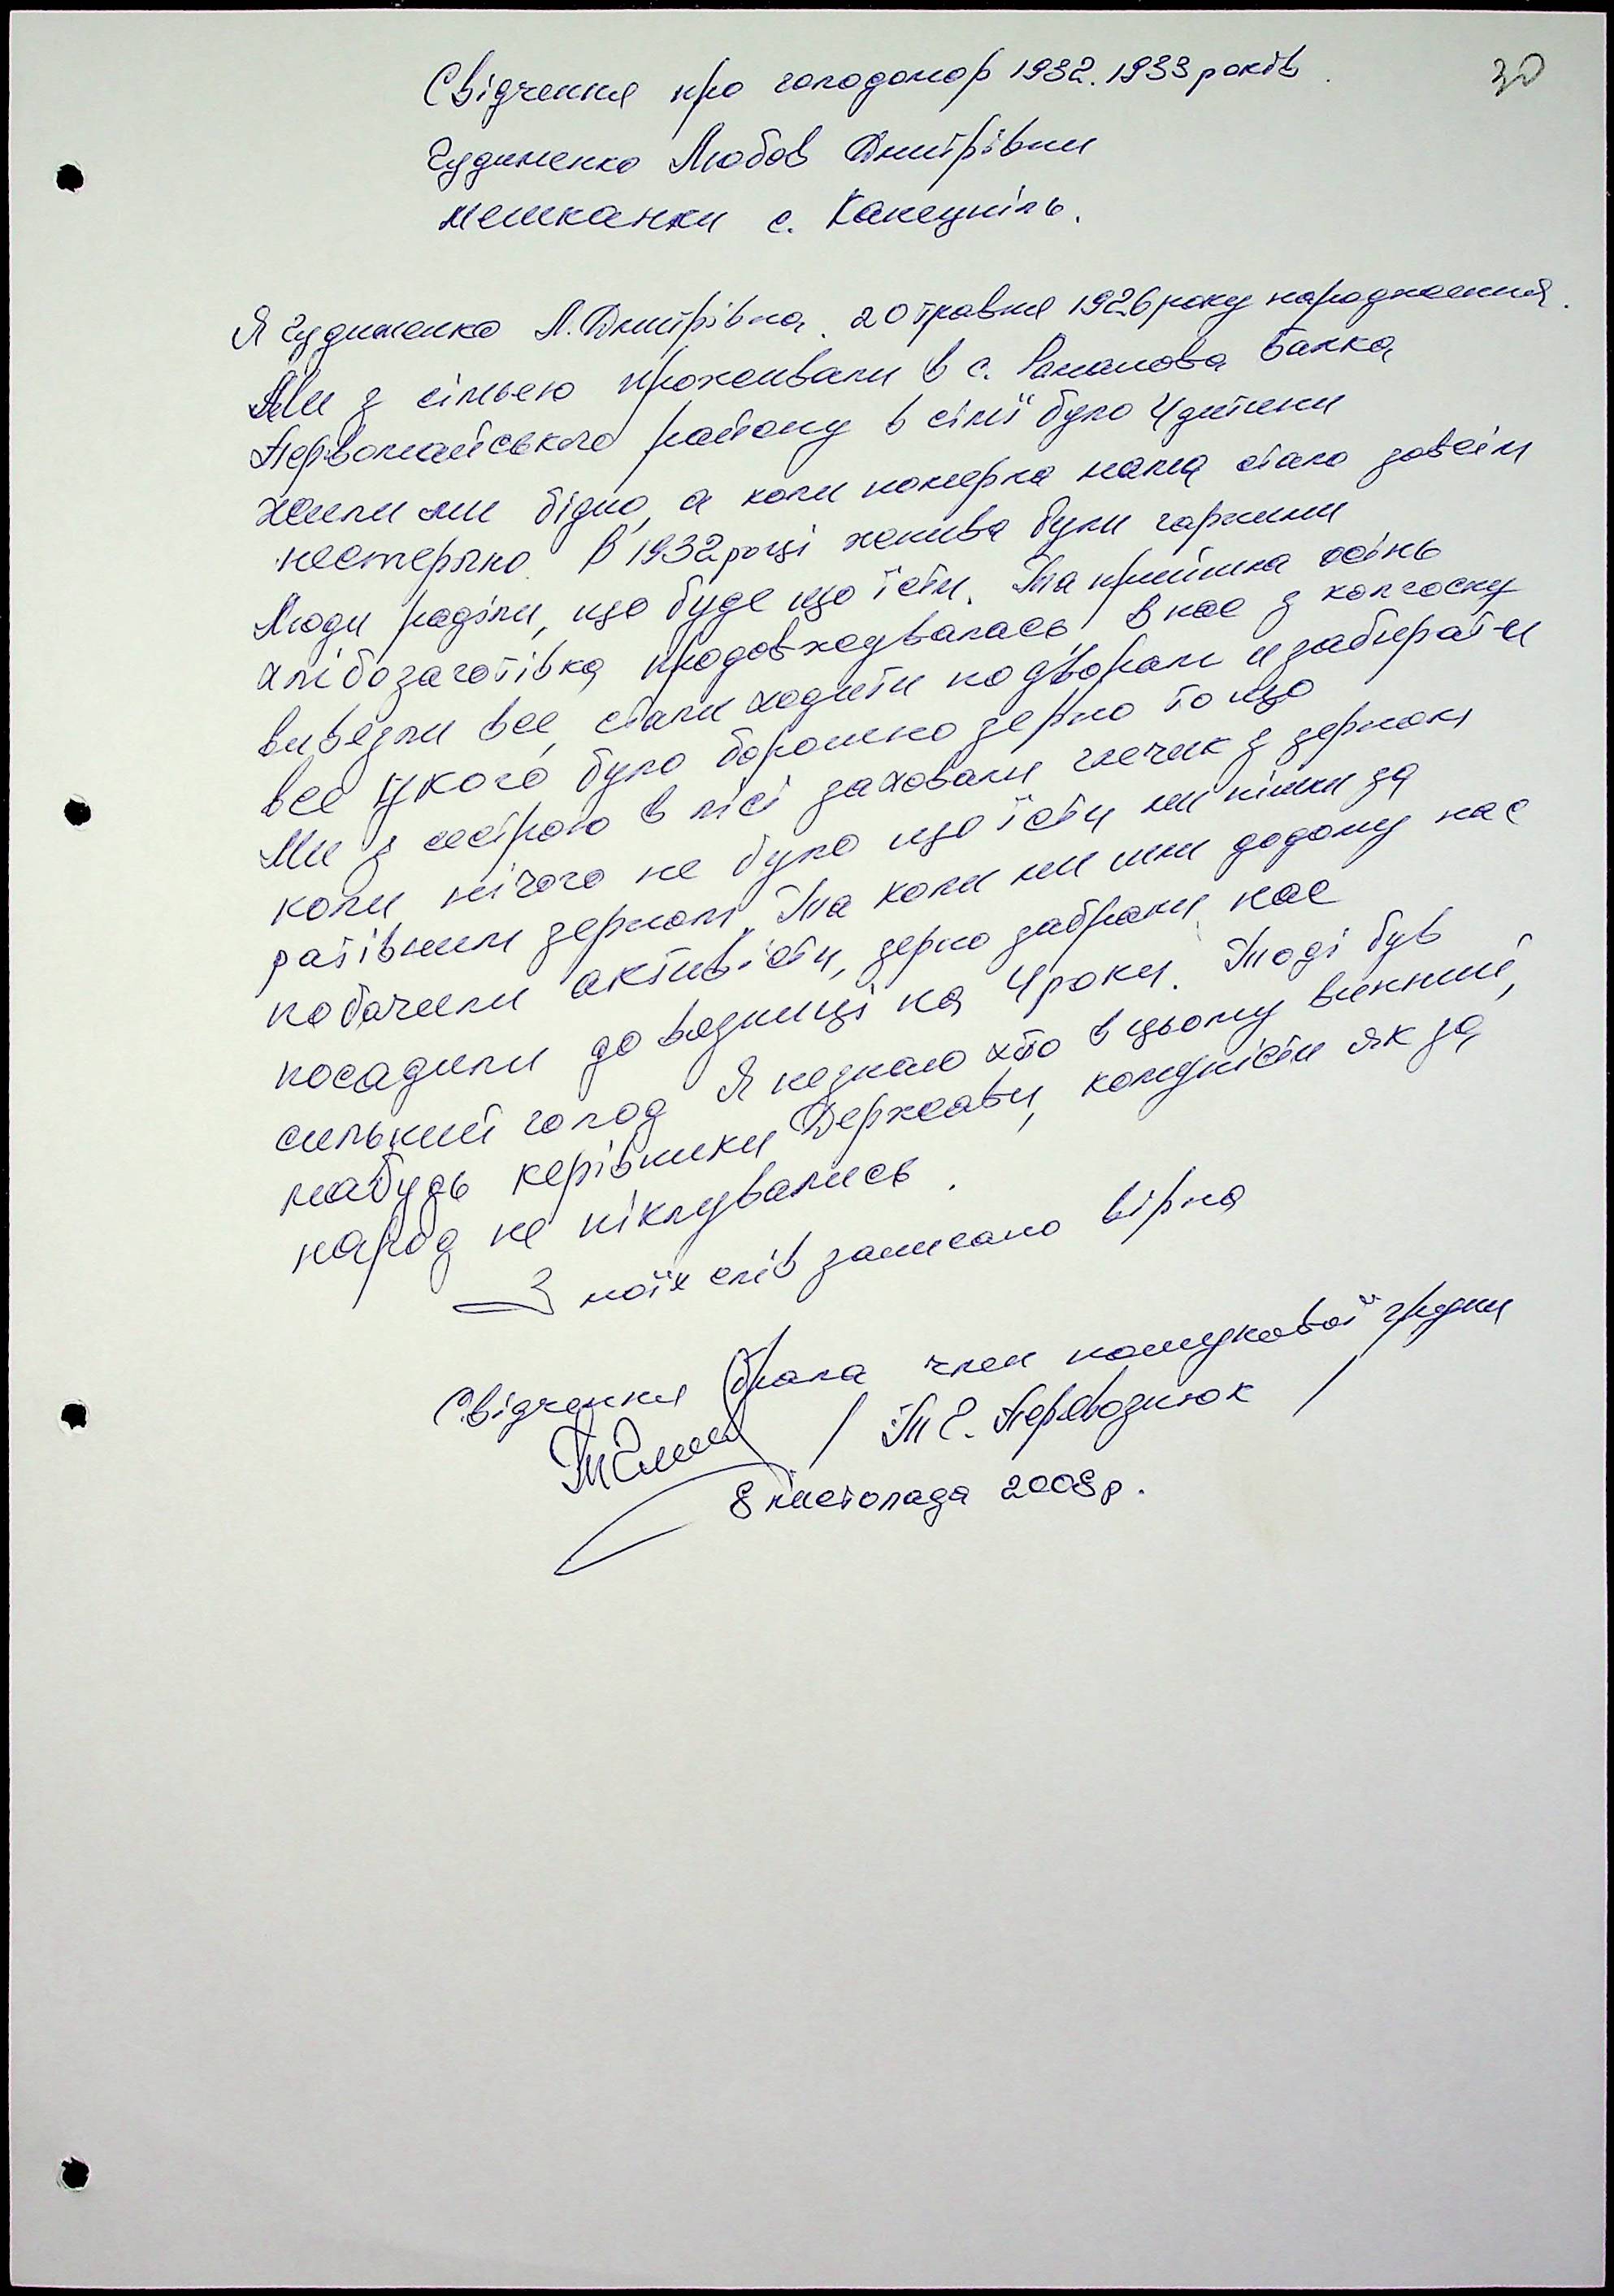 30
Свідчення про голодомор 1932.1933 років.
Гудименко Любов Дмитрівни
мешканки с. Канецпіль.
Я Гудименко Л. Дмитрівна. 20 травня 1926 року народження.
Ми з сімьею проживали в с. Романова Балка
Первомайського району в сімї було 4 дитини
жили ми бідно, а коли померла мама стало зовсім
нестерпно. В 1932 році жнива були гарними
Люди раділи, що буде що їсти. Та прийшла осінь
хлібозаготівка продовжувалась, в нас з колгоспу
вивезли все, стали ходити по дворам и забирати
все у кого було борошно зерно то що
Ми з сестрою в лісі заховали глечик з зерном
коли нічого не було що їсти ми пішли за
ратівним зерном. Та коли ми шли додому нас
побачили активісти, зерно забрали, нас
посадили до вязниці на 4 роки. Тоді був
сильний голод Я незнаю хто в цьому винний,
мабудь керівники Держави, комуністи як за
народ не піклувались.
З моїх слів записано вірно
Свідчення брала член пошукової групи
/ Т Є. Перевознюк /
8 листопада 2008 р.